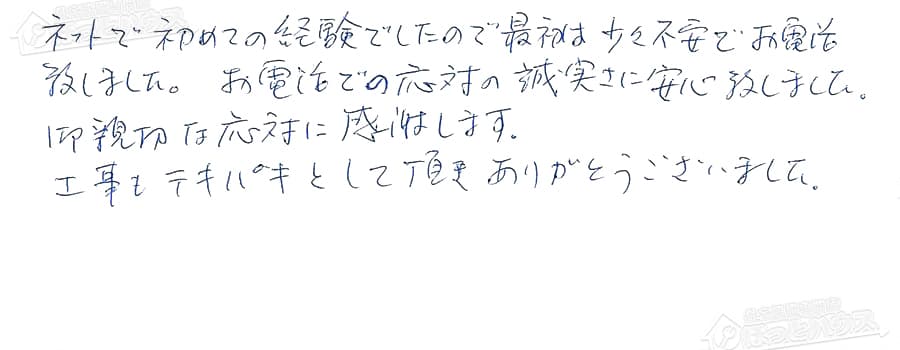 ネットで初めての経験でしたので最初は少々不安でお電話
致しました。お電話での応対の誠実さに安心致しました。
御親切な応対に感謝します。
工事もテキパキとして頂きありがとうございました。